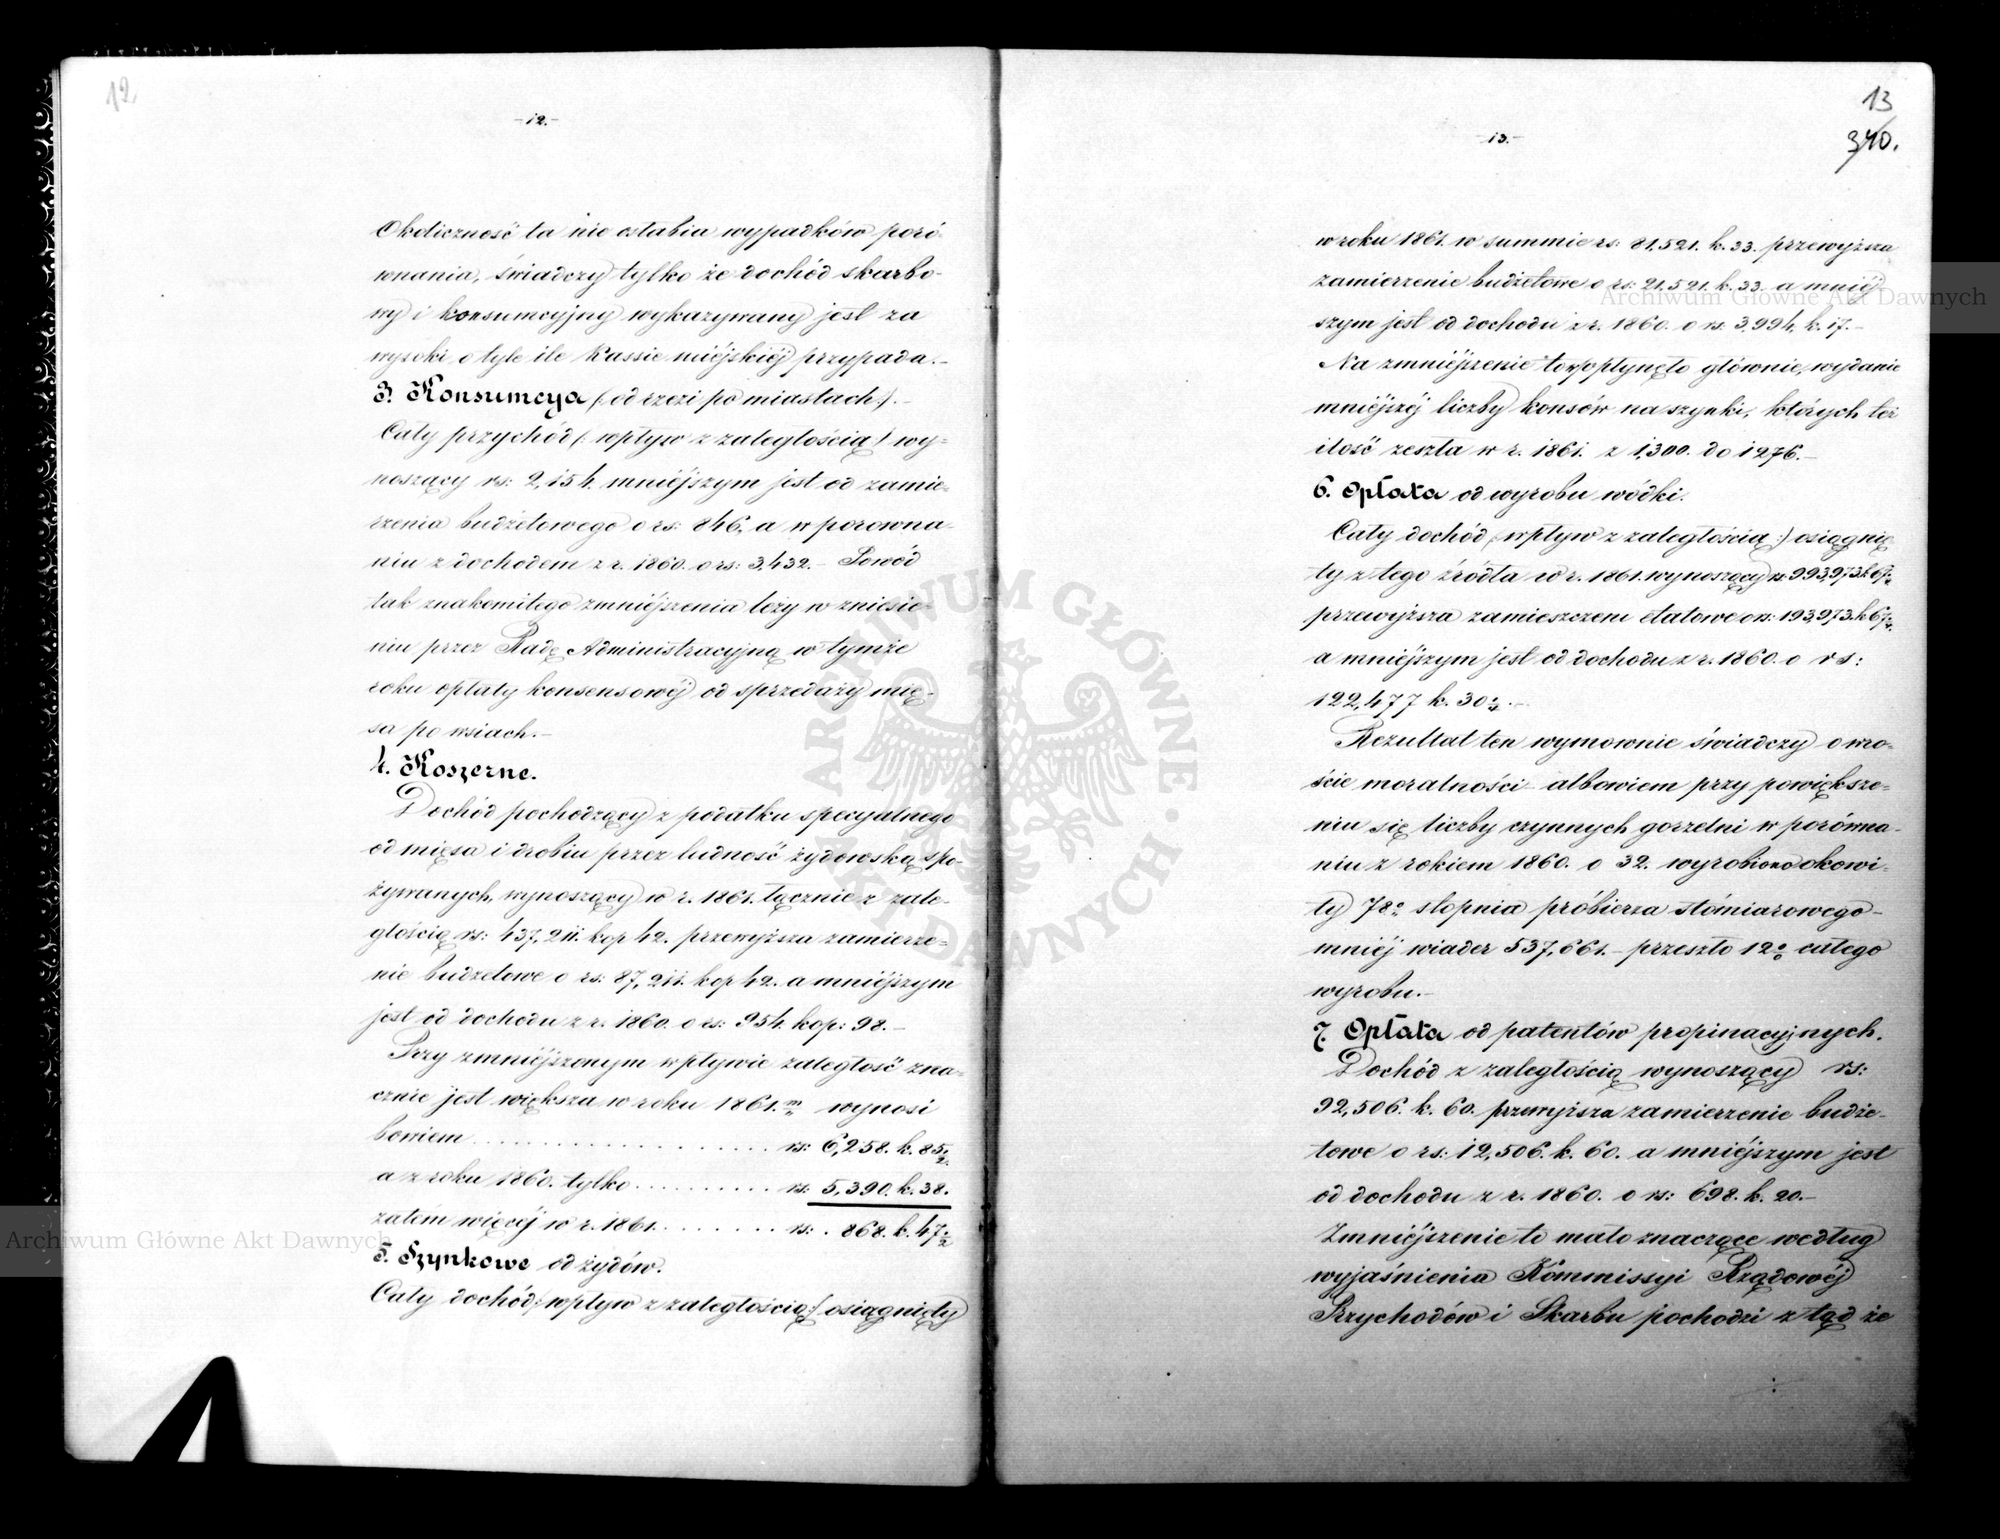 12
-12.-
Okoliczność ta nie osłabia wypadków poró-
wnania, świadczy tylko że dochód skarbo-
wy i konsumcyjny wykazywany jest za
wysoki o tyle ile Kassie miéjskiéj przypada.-
3. Konsumcya (: od rzezi po miastach :).-
Cały przychód (: wpływ z zaległością :) wy-
noszący rs: 2,154. mniéjszym jest od zamie-
rzenia budżetowego o rs: 846, a w porowna-
niu z dochodem z r. 1860. o rs: 3,432.- Powód
tak znakomitego zmniéjszenia leży w zniesie-
niu przez Radę Administracyjną w tymże
roku opłaty konsensowéj od sprzedaży mię-
sa po wsiach.-
4. Koszerne.
Dochód pochodzący z podatku specyalnego
od mięsa i drobiu przez ludność żydowską spo-
żywanych, wynoszący w r. 1861. łącznie z zale-
głością rs: 437,211. kop 42. przewyższa zamierze-
nie budżetowe o rs: 87,211. kop 42. a mniéjszym
jest od dochodu z r. 1860. o rs: 954. kop: 98.-
Przy zmniéjszonym wpływie zaległość zna-
cznie jest większa w roku 1861.m wynosi
bowiem . . . . . . . . . . rs: 6,258. k. 85½
a z roku 1860. tylko . . . . . . . . . . rs: 5,390. k. 38.
zatém więcéj w r. 1861. . . . . . . . rs: . 868. k. 47½
5. Szynkowe od żydów.
Cały dochód (: wpływ z zaległością :) osiągnięty
13
340.
-13.-
w roku 1861. w summie rs: 81,521. k. 33. przewyższa
zamierzenie budżetowe o rs: 21,521. k. 33. a mniéj-
szym jest od dochodu z r. 1860. o rs. 3,994. k. 17.-
Na zmniéjszenie to wpłynęło głównie, wydanie
mniéjszéj liczby konsów na szynki, których to
ilość zeszła w r. 1861. z 1,300. do 1276.-
6. Opłata od wyrobu wódki.
Cały dochód (: wpływ z zaległością :) osiągnię
ty z tego źródła w r. 1861. wynoszący rs 993,973. k 67½
przewyższa zamieszczeni etatowe o rs: 193,973. k 67½,
a mniéjszym jest od dochodu z r. 1860. o rs:
122,477 k. 30¼.-
Rezultat ten wymownie świadczy o wzro-
ście moralności albowiem przy powiększe-
niu się liczby czynnych gorzelni w porówna-
niu z rokiem 1860. o 32. wyrobiono okowi-
ty 78° stopnia próbierza stómiarowego-
mniéj wiader 537,661.- przeszło 12% całego
wyrobu.-
7. Opłata od patentów propinacyjnych.
Dochód z zaległością wynoszący rs:
92,506. k. 60. przewyższa zamierzenie budże-
towe o rs: 12,506. k. 60. a mniéjszym jest
od dochodu z r. 1860. o rs: 698. k. 20.-
Zmniéjszenie to mało znaczące według
wyjaśnienia Kommissyi Rządowéj
Przychodów i Skarbu pochodzi z tąd że
ARCHIWUM GŁÓWNE AKT DAWNYCH
Archiwum Główne Akt Dawnych
Archiwum Główne Akt Dawnych